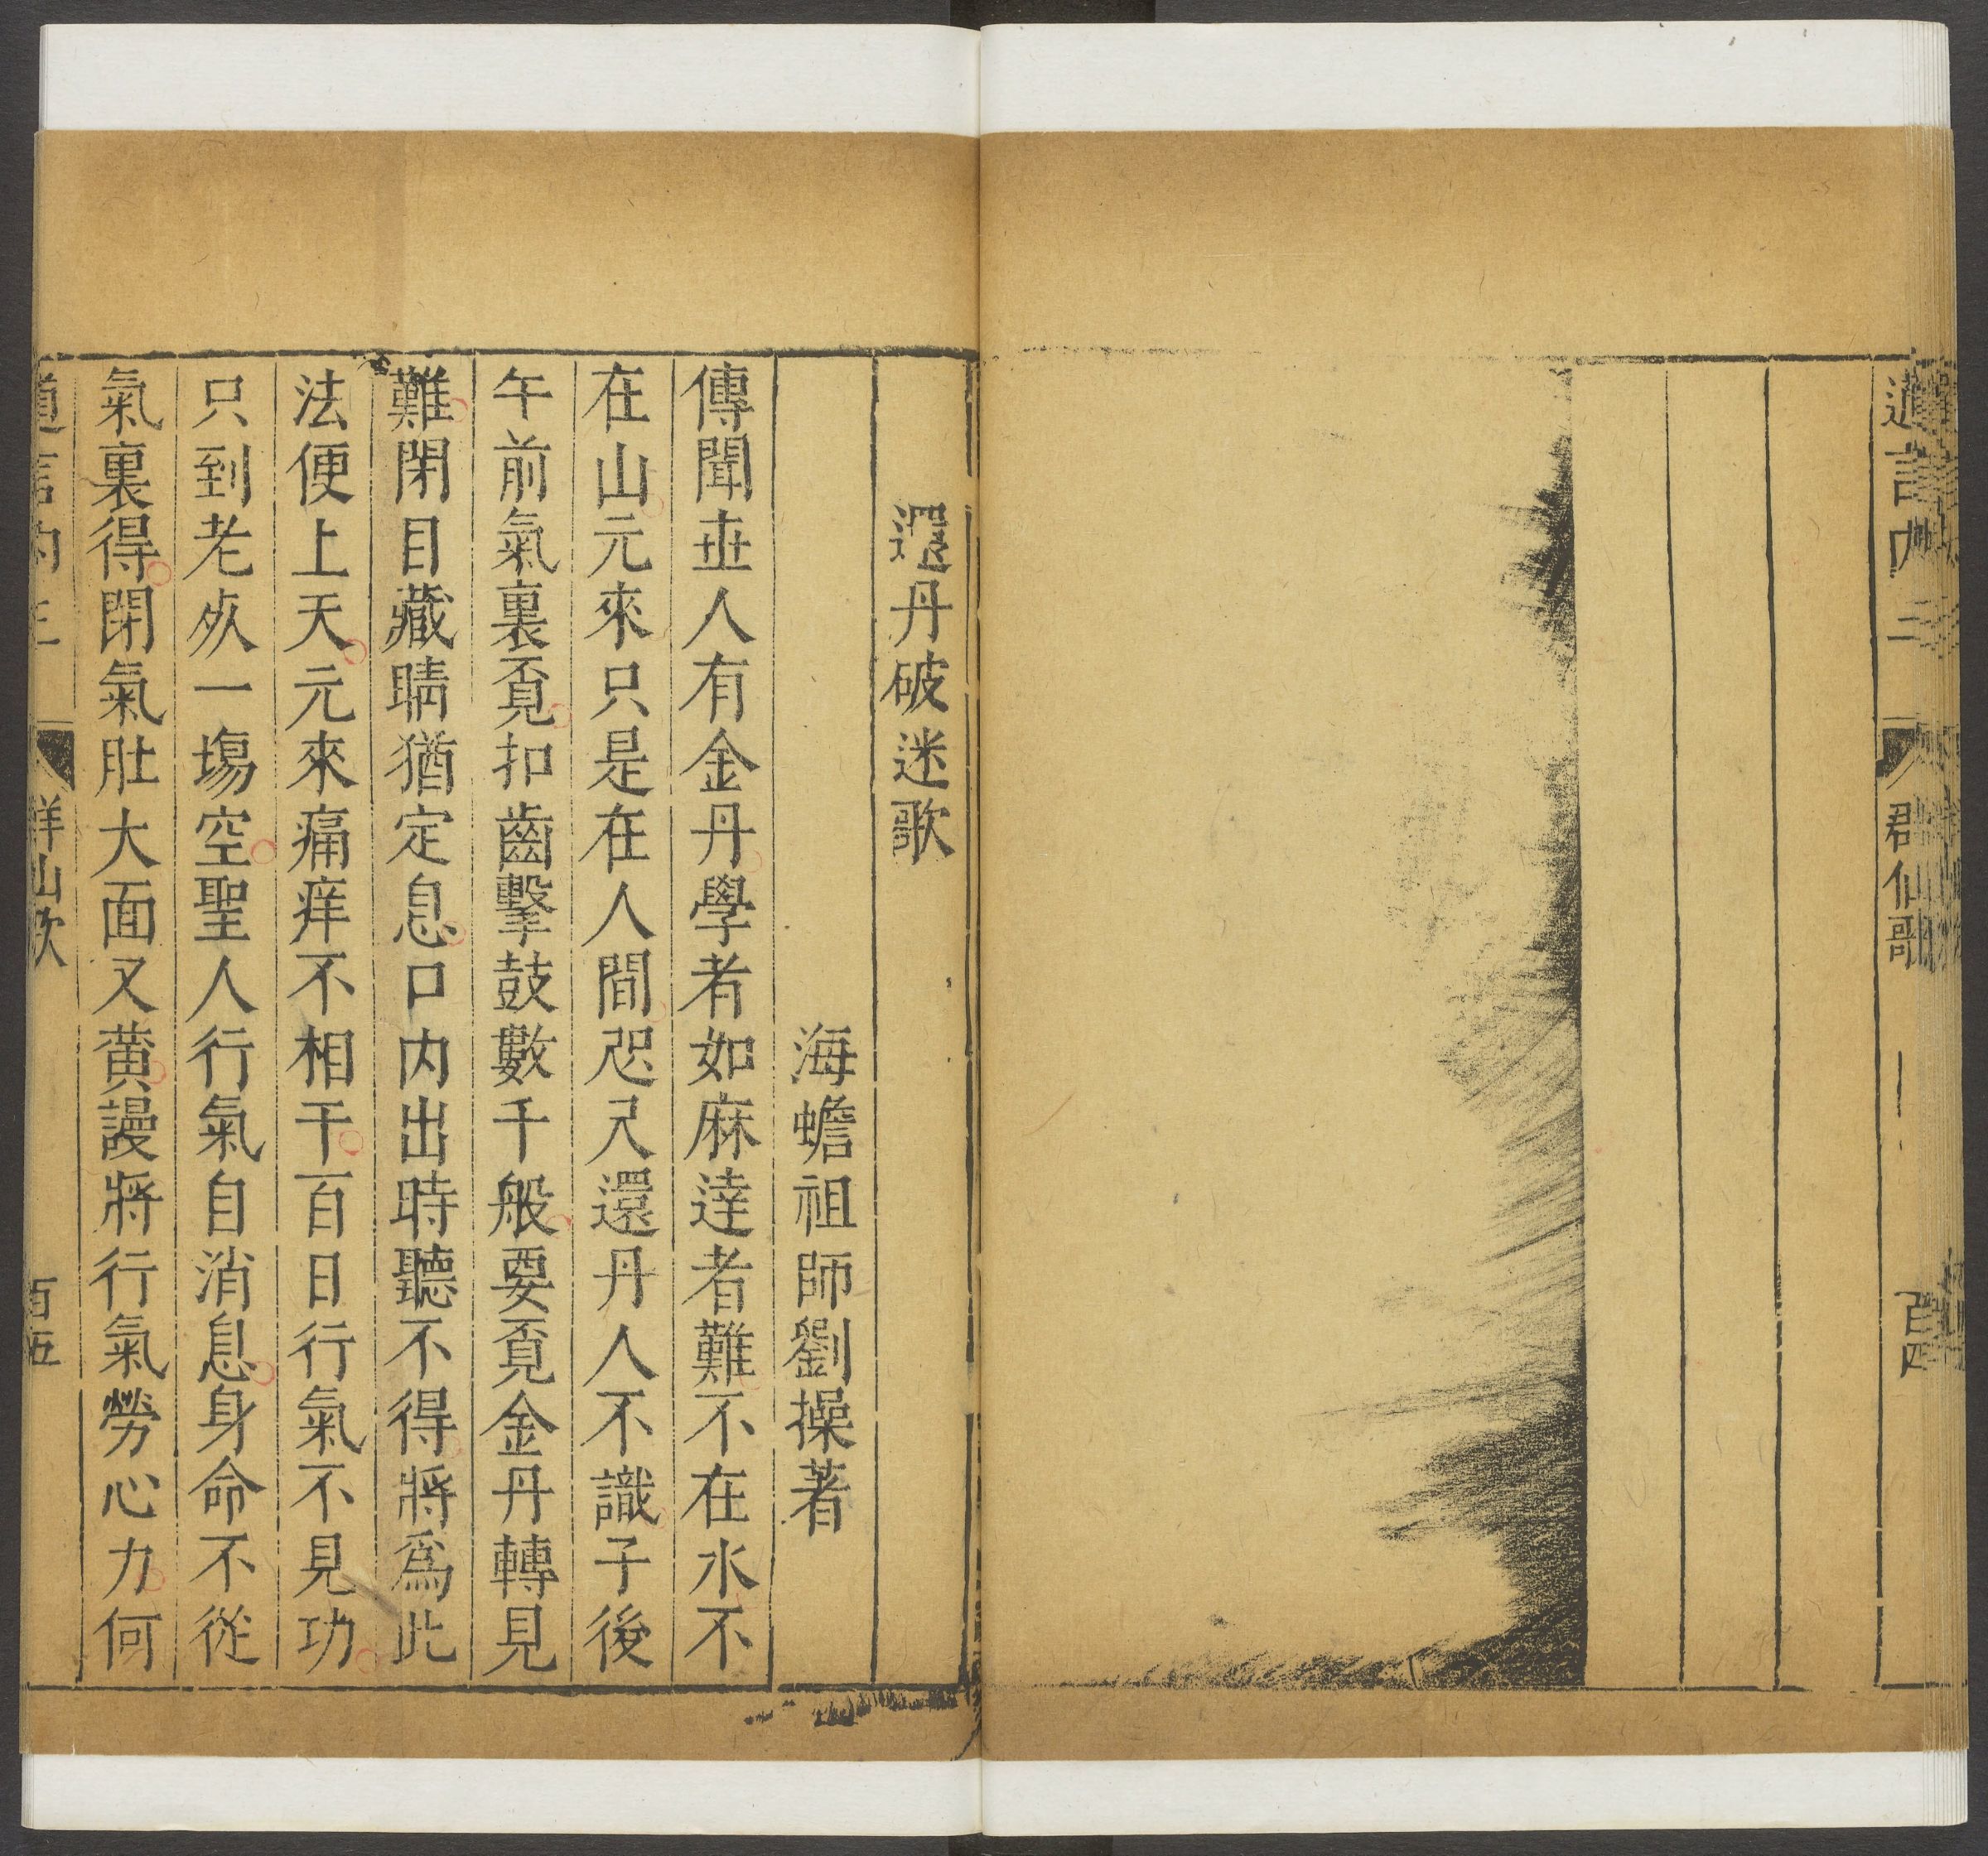 道言內二
群仙歌
百四
還丹破迷歌
海蟾祖師劉操著
傳聞世人有金丹學者如麻達者難不在水不
在山元來只是在人間咫尺還丹人不識子後
午前氣裏覔扣齒擊鼓數千般要覔金丹轉見
難閉目藏睛猶定息口内出時聽不得將爲此
法便上天元來痛痒不相干百日行氣不見功
只到老死一場空聖人行氣自消息身命不從
氣裏得閉氣肚大面又黄謾將行氣勞心力何
道言内
百五